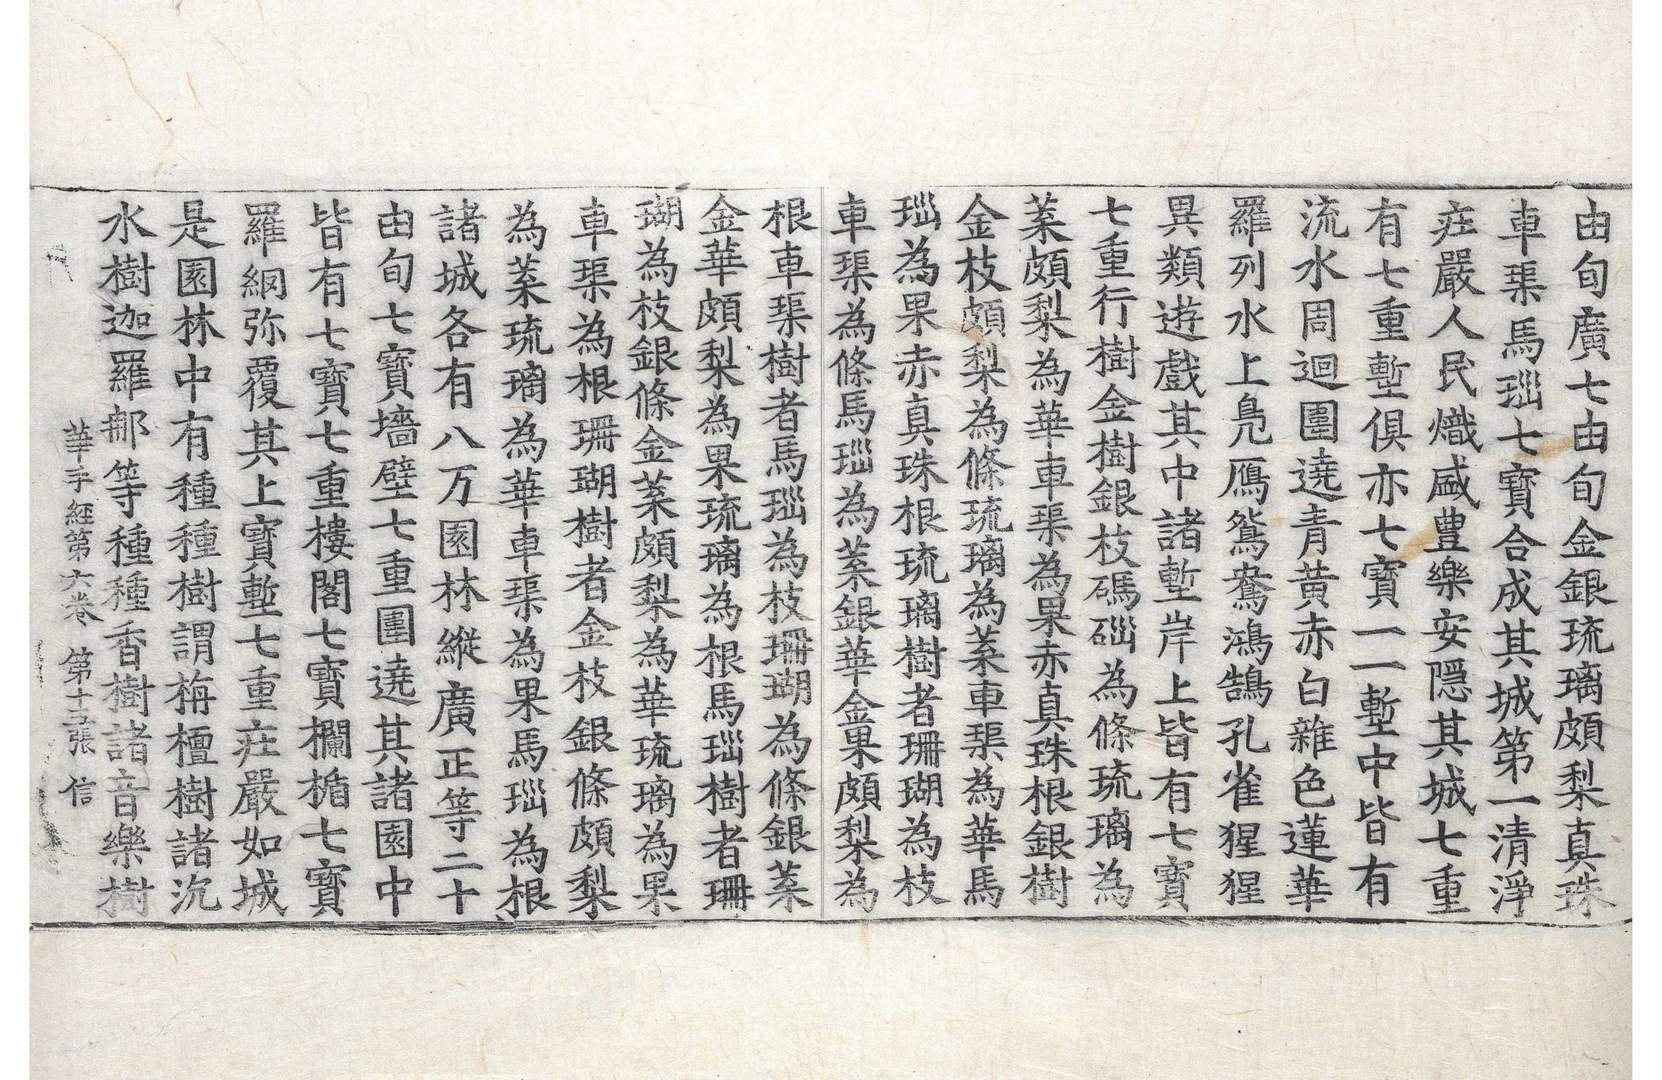 由旬廣七由旬金銀琉璃頗梨真珠
車𤦲馬瑙七寶合成其城第一清淨
莊嚴人民熾盛豊樂安隱其城七重
有七重壍俱亦七寶一一壍中皆有
流水周迴團遶青黃赤白雜色蓮華
羅列水上鳬鴈鴛鴦鴻鵠孔雀猩猩
異類遊戲其中諸壍岸上皆有七寶
七重行樹金樹銀枝碼碯為條琉璃為
葉頗梨為華車𤦲為果赤真珠根銀樹
金枝頗梨為條琉璃為葉車𤦲為華馬
瑙為果赤真珠根琉璃樹者珊瑚為枝
車𤦲為條馬瑙為葉銀華金果頗梨為
根車𤦲樹者馬瑙為枝珊瑚為條銀葉
金華頗梨為果琉璃為根馬瑙樹者珊
瑚為枝銀條金葉頗梨為華琉璃為果
車𤦲為根珊瑚樹者金枝銀條頗梨
為葉琉璃為華車𤦲為果馬瑙為根
諸城各有八万園林縱廣正等二十
由旬七寶墻壁七重團遶其諸園中
皆有七寶七重樓閣七寶欄楯七寶
羅網弥覆其上寶壍七重莊嚴如城
是園林中有種種樹謂栴檀樹諸沉
水樹迦羅郍等種種香樹諸音樂樹
華手經第六卷　第十三張　信